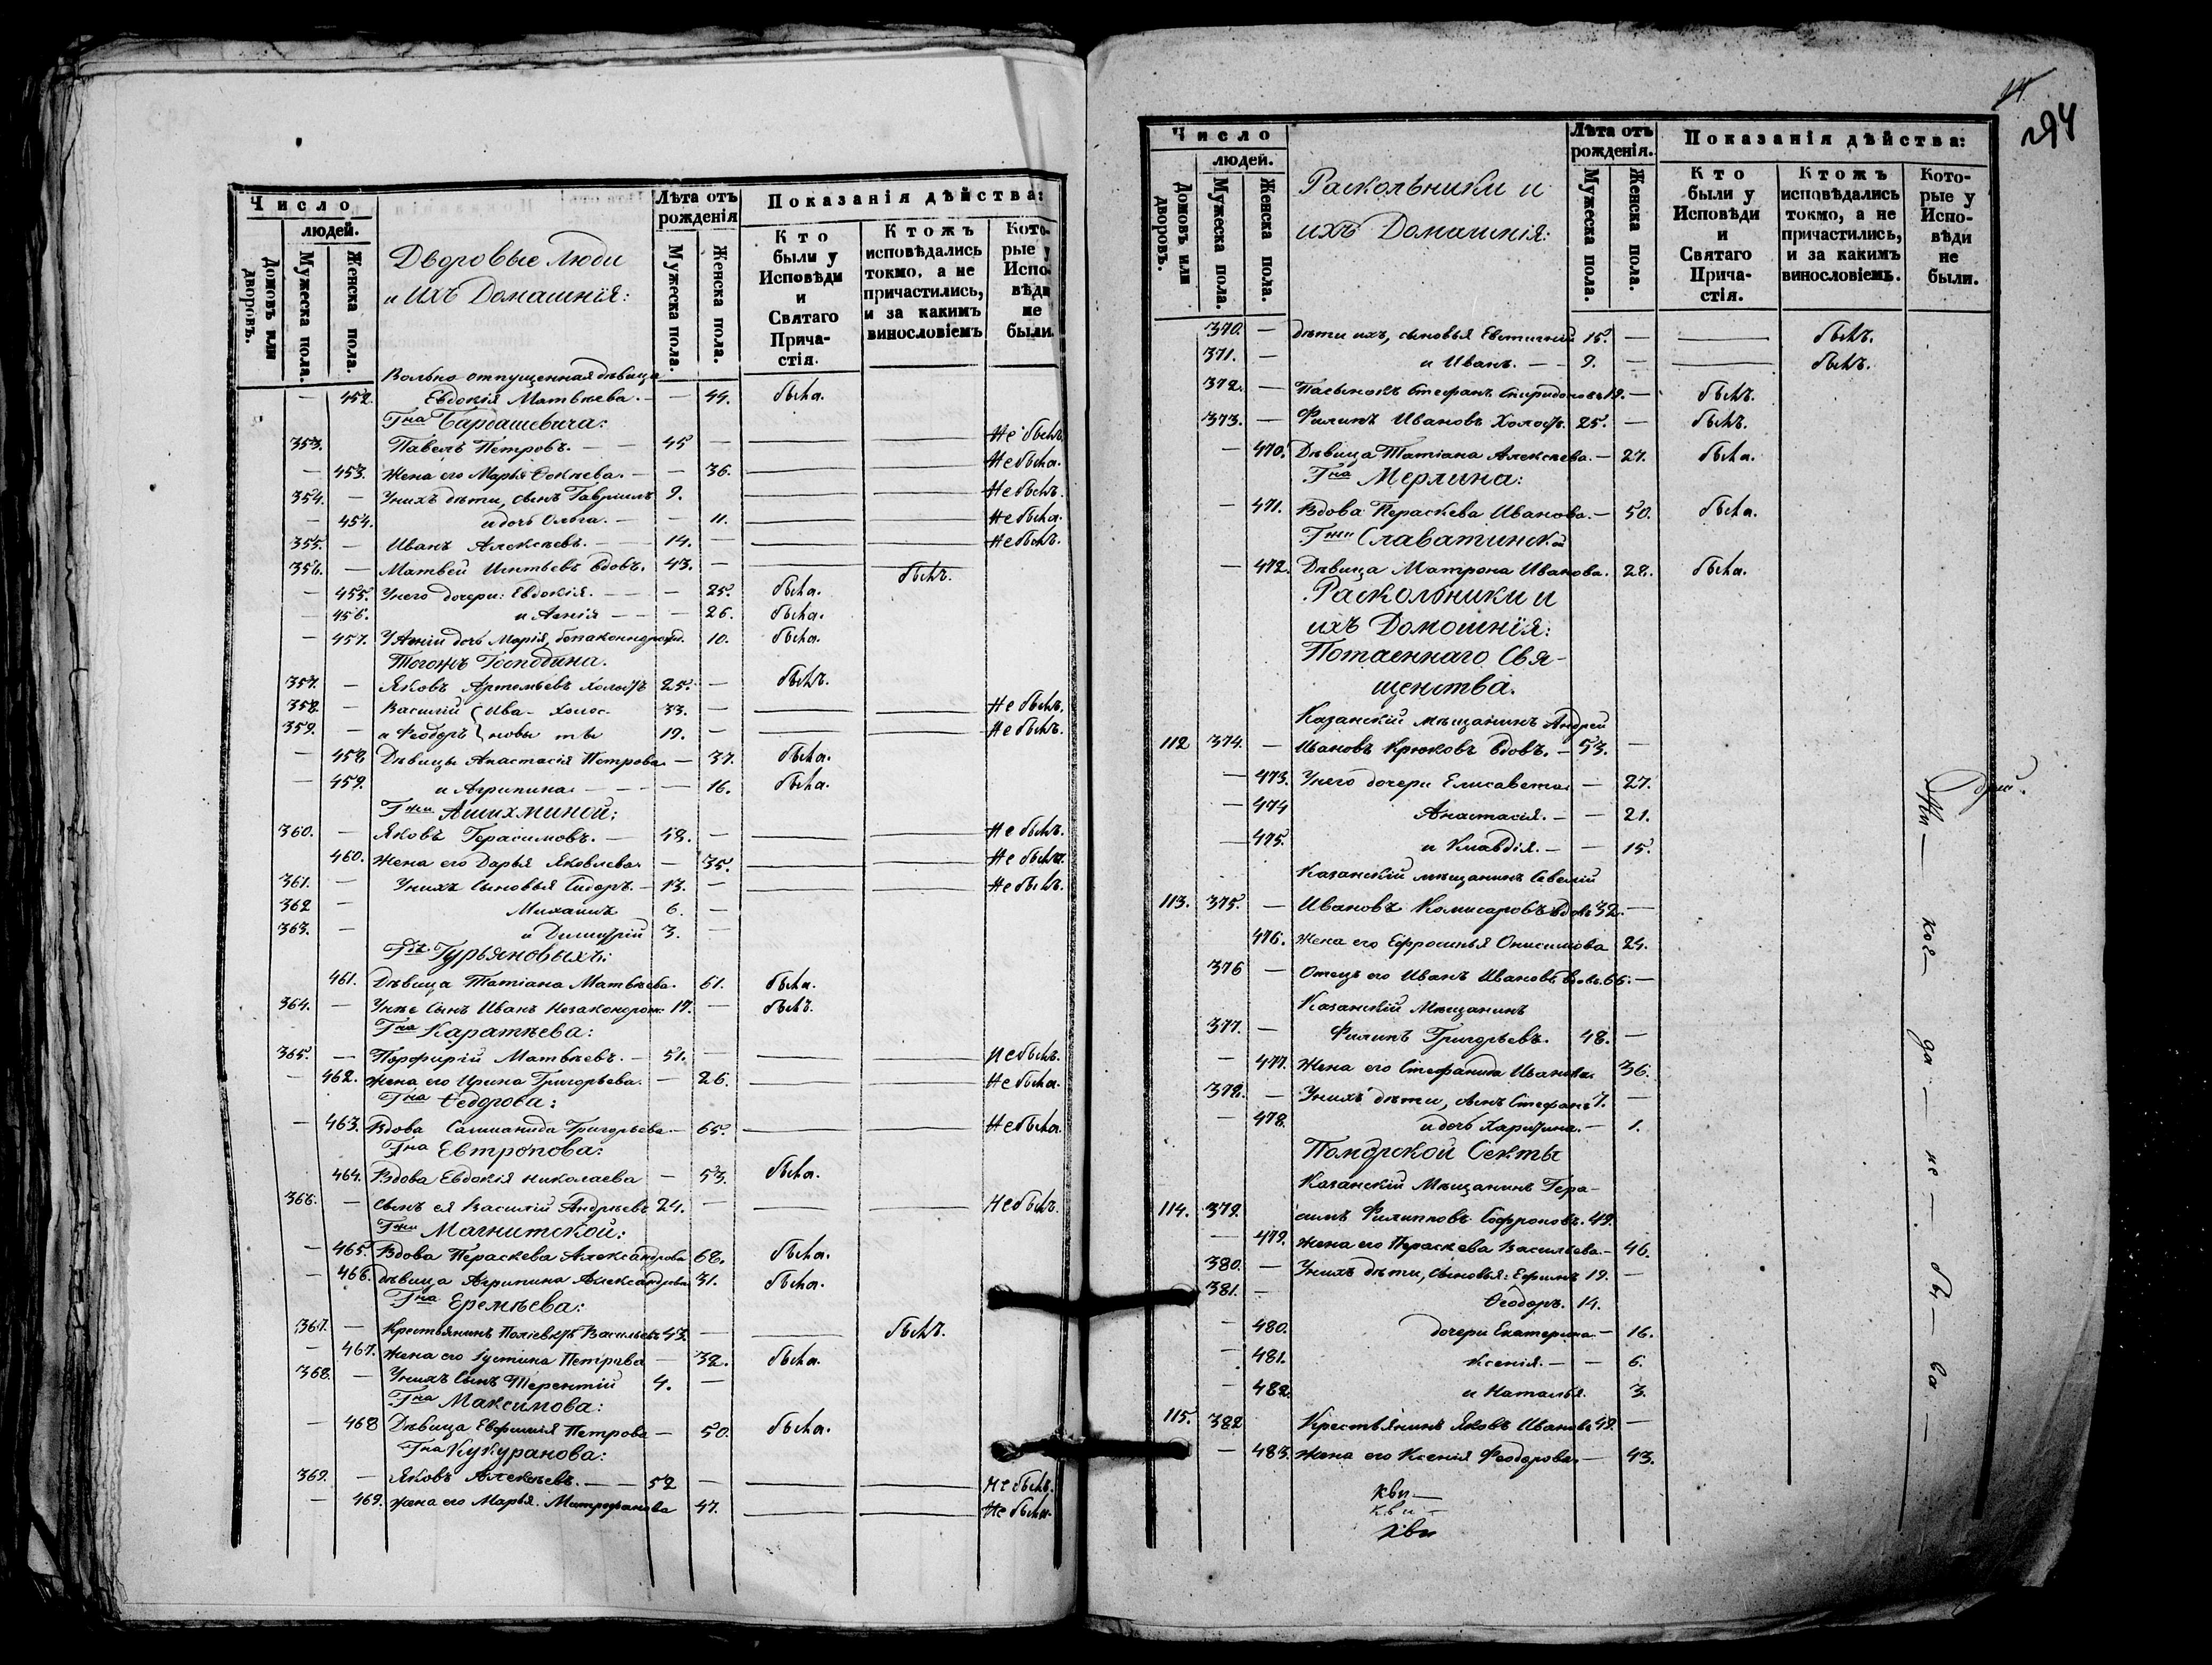 Число
людей.
Домовъ или дворовъ.
Мужеска пола.
Женска пола.
Дворовые Люди
и Ихъ Домашнія:
Лѣта отъ рожденія
Мужеска пола.
Женска пола.
Показанія дѣйства:
Кто были у Исповѣди и Святаго Причастія.
Ктожъ исповѣдались токмо, а не причастились, и за какимъ винословіемъ
Которые у Исповѣди не были.
Вольно отпущенная дѣвица
— 452. Евдокія Матвѣева. — — 44. была.
Гна Бардашевича:
353. Павелъ Петровъ. — 45 — Не былъ
— 453. Жена его Марья — — 36. Не была.
354. — Унихъ дѣти, сынъ Гавріилъ 9. Не былъ.
— 454. и дочь Ольга. — — 11. Не была.
355. — Иванъ Алексѣевъ. — 14. — Не былъ.
356. — Матвей Игнтьевъ вдовъ. 43. — былъ.
— 455. Унего дочери: Евдокія. — — 25. была.
— 456. и Агнія — — 26. была.
— 457. У Агніи дочь Марія, 10. была.
Тогожъ Господина.
357. — Яковъ Артемьевъ холостъ 25. — былъ.
358. — Василій Ива- холос- 33. — Не былъ.
359. — и Феодоръ новы ты 19. — Не былъ.
— 458 Дѣвицы Анастасія Петрова — 37. была.
— 459. и Агрипина — — 16. была.
Гжи Ашихминой:
360. — Яковъ Герасимовъ. — 48. — Не былъ.
460. Жена его Дарья Яковлева. — 35. Не была.
361. — Унихъ Сыновья Сидоръ. — 13. — Не былъ.
362 — Михаилъ 6. —
363. — и Димитрій 3. —
Гдъ Гурьяновыхъ:
461. Дѣвица Татіана Матвѣева. 61. была.
364. — Унѣе Сынъ Иванъ Незаконорож: 17. — былъ.
Гна Каратѣева:
365. — Порфирій Матвѣевъ. — 51. — Не былъ.
— 462. Жена его Ирина Григорьева. — 26. Не была.
Гна Ѳедорова:
— 463. Вдова Саломанида Григорьева. — 65. Не была.
Гна Евтропова:
464. Вдова Евдокія Николаева — 53. была.
366. — Сынъ ея Василій Андрѣевъ 24. — Не былъ.
Гжи Магнитской:
— 465. Вдова Пераскева Александрова 68. была.
— 466. Дѣвица Агрипина Александрова 31. была.
Гна Еремѣева:
367. — Крестьянинъ Поліевктъ Васильевъ 43. — былъ.
— 467. Жена его Іустина Петрова — 32. была.
368. — Унихъ Сынъ Терентій 4. —
Гна Максимова:
— 468 Дѣвица Евфимія Петрова — 50. была.
Гна Кукуранова:
369. — Яковъ Алексѣевъ. — 52 — Не былъ.
— 469. Жена его Марья. Митрофанова 47. Не была.
14.
294
Число
людей.
Домовъ или дворовъ.
Мужеска пола.
Женска пола.
Раскольники и
ихъ Домашнія:
Лѣта отъ рожденія.
Мужеска пола.
Женска пола.
Показанія дѣйства:
Кто были у Исповѣди и Святаго Причастія.
Ктожъ исповѣдались токмо, а не причастились, и за какимъ винословіемъ.
Которые у Исповѣди не были.
370. — дѣти ихъ, сыновья Евстигній 15. — былъ.
371. — и Иванъ. — 9. — былъ.
372. — Пасынокъ Стефанъ Спиридоновъ 19. — былъ.
373. — Филипъ Ивановъ Холостъ. 25. — былъ.
— 470. Дѣвица Татіана Алексѣева. — 27. была.
Гна Мерлина:
— 471. Вдова Пераскева Иванова. — 50. была.
Гжи Славатинской
— 472. Дѣвица Матрона Иванова. 28. была.
Раскольники и
ихъ Домошнія:
Потаеннаго Свя-
щенства.
Казанскій мѣщанинъ Андрей
112 374. — Ивановъ Крюковъ вдовъ. — 53. —
— 473. Унего дочери Елисавета — 27.
— 474 Анастасія. — — 21.
— 475. и Клавдія. — — 15.
Казанскій мѣщанинъ Савелій
113. 375. — Ивановъ Комисаровъ вдовъ 32. —
476. Жена его Ефросинья Онисимова 24.
376 — Отецъ его Иванъ Ивановъ вдовъ. 66. —
Казанскій Мѣщанинъ
377. — Филипъ Григорьевъ. 48. —
— 477. Жена его Стефанида Иванова. 36.
378. — Унихъ дѣти, сынъ Стефанъ 7. —
— 478. и дочь Харитина. — 1.
Поморской Секты
Казанскій Мѣщанинъ Гера-
114. 379. симъ Филиповъ Софроновъ. 49.
— 479. Жена его Пераскева Васильева. — 46.
380. — Унихъ дѣти, сыновья: Ефимъ 19. —
381. — Ѳеодоръ. 14.
— 480. дочери Екатерина — 16.
— 481. Ксенія. — — 6.
— 482. и Наталья. 3.
115. 382 Крестьянинъ Яковъ Ивановъ 49. —
— 483. Жена его Ксенія Феодорова. — 43.
Ни — ког- да — не — бы — ва —